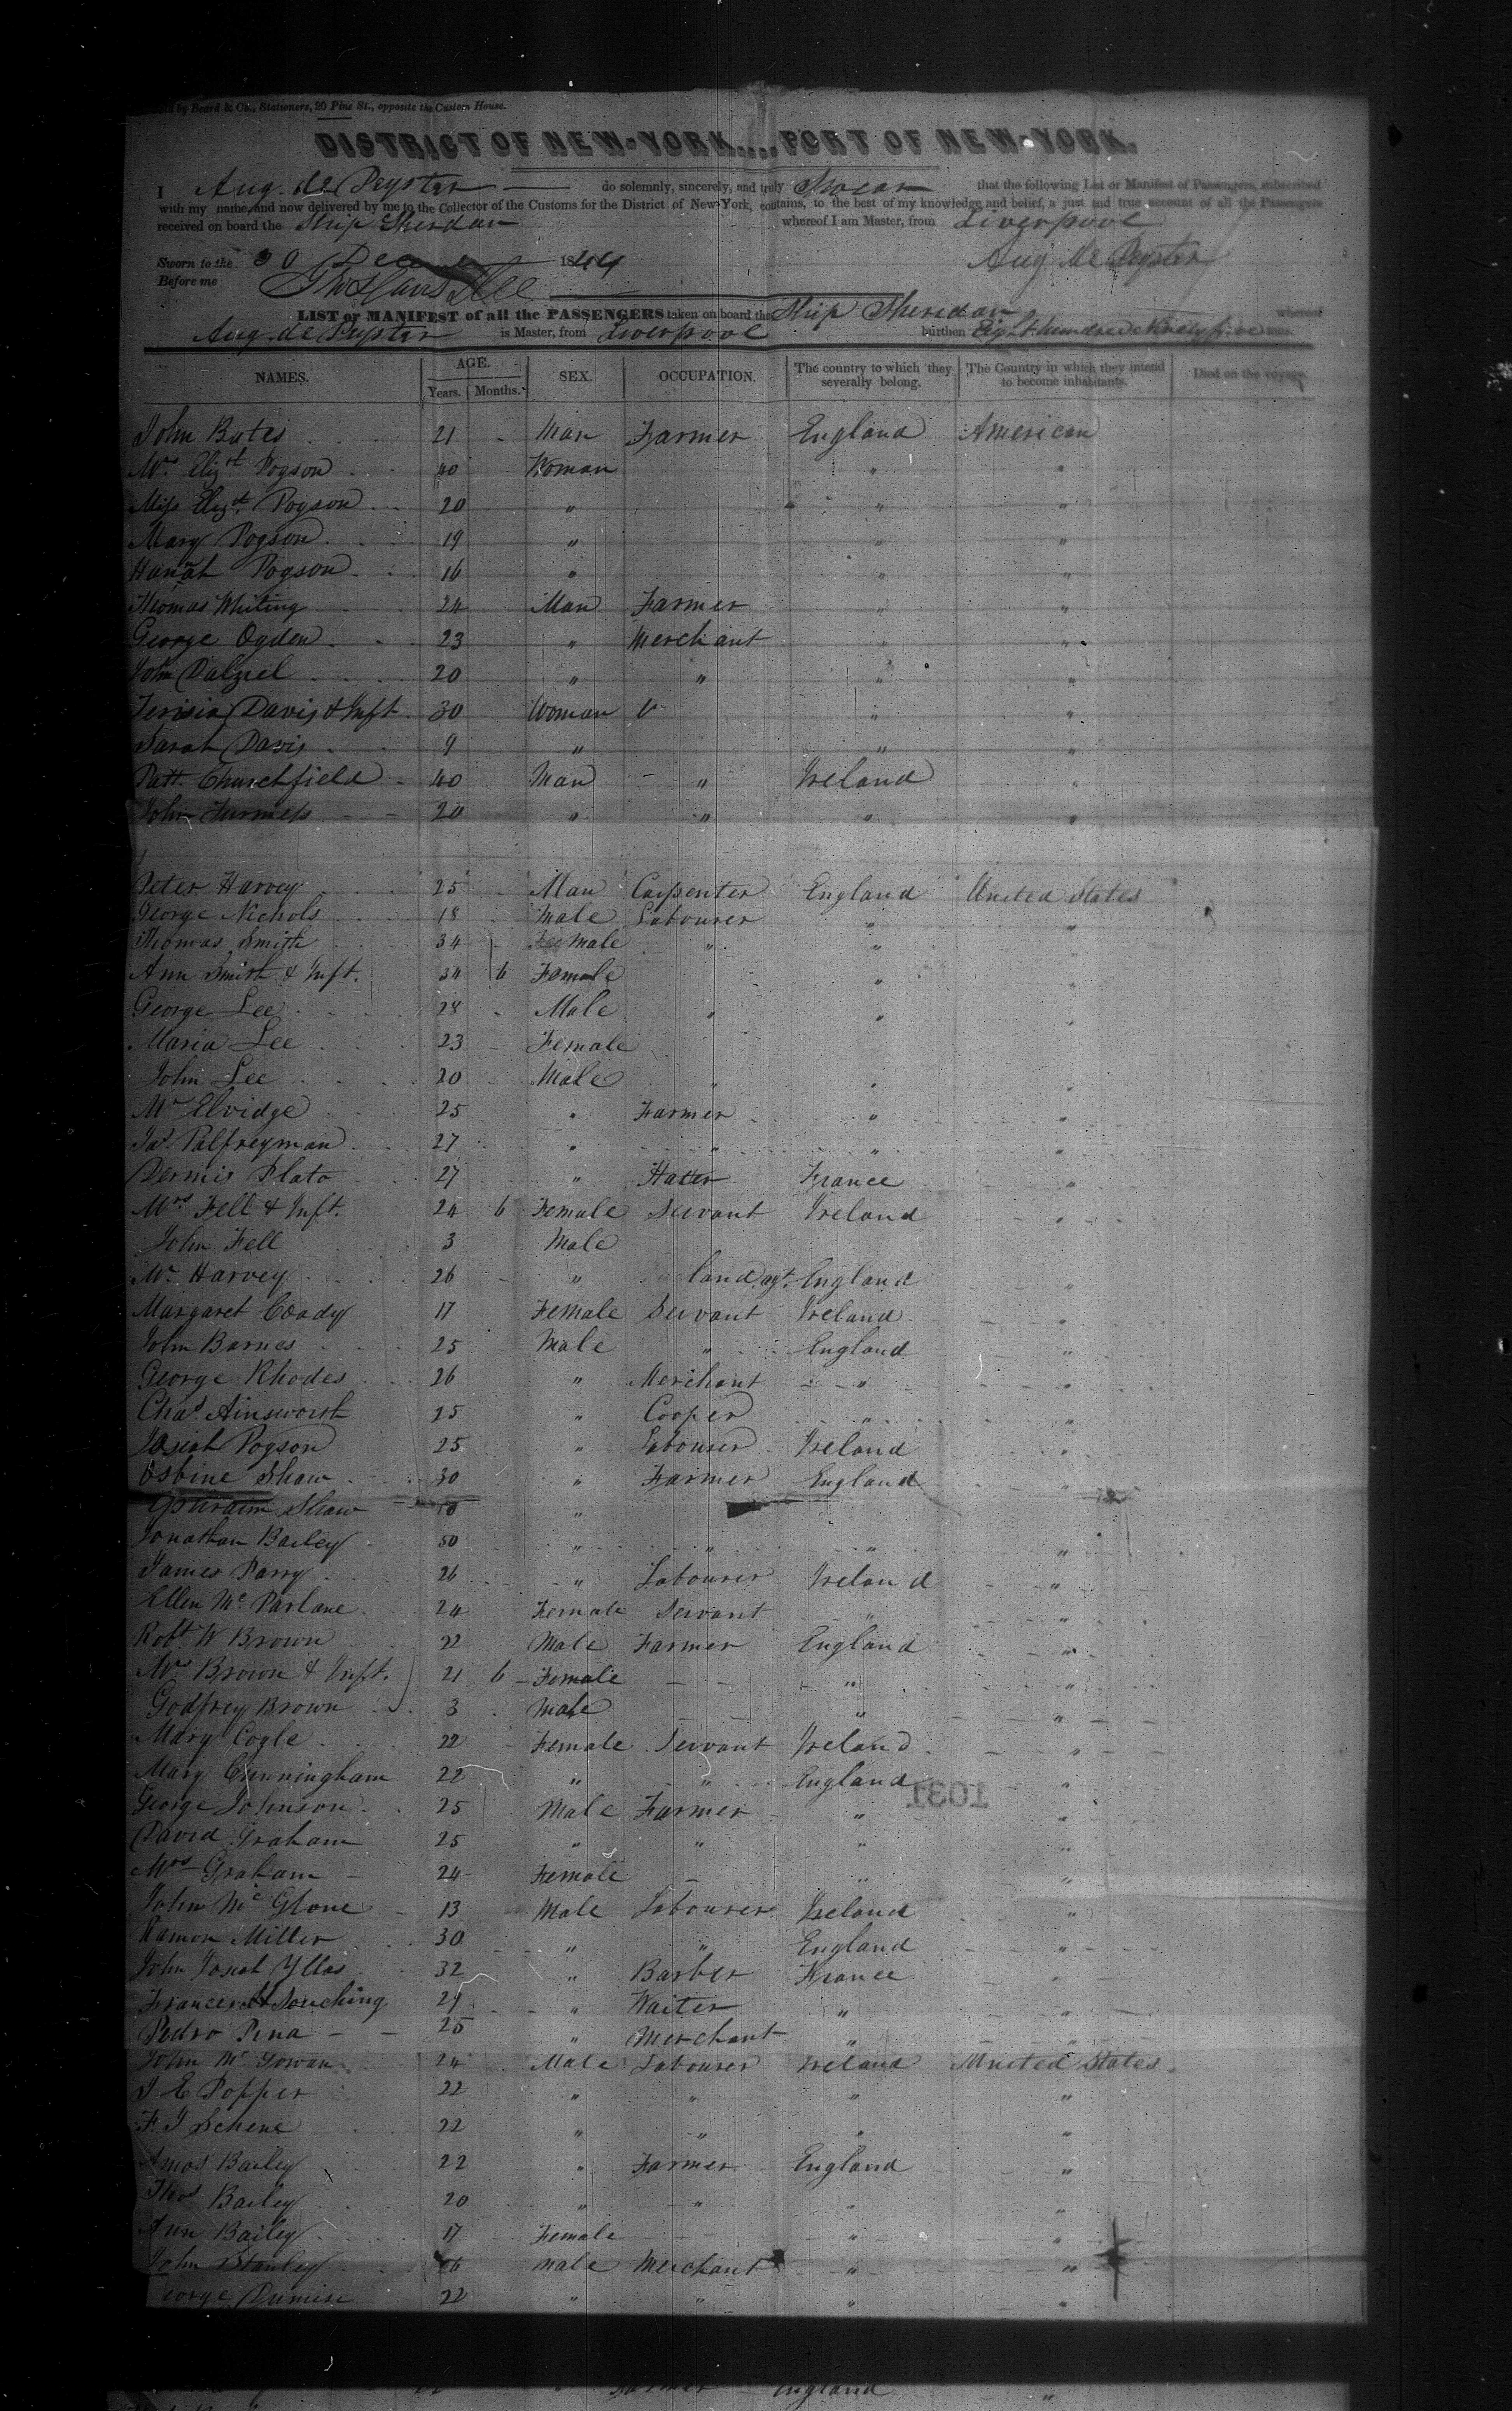 by Beard & Co., Stationers, 20 Pine St., opposite the Custom House.
DISTRICT OF NEW-YORK....PORT OF NEW-YORK.
I Aug. de Peyster do solemnly, sincerely, and truly Swear that the following List or Manifest of Passengers, subscribed
with my name, and now delivered by me to the Collector of the Customs for the District of New-York, contains, to the best of my knowledge and belief, a just and true account of all the Passengers
received on board the Ship Sheridan whereof I am Master, from Liverpool
Sworn to the 30 Dec 1844 Aug de Peyster
Before me
LIST or MANIFEST of all the PASSENGERS taken on board the Ship Sheridan whereof
Aug. de Peyster is Master, from Liverpool burthen Eight hundred Ninety five tons.
NAMES. AGE. Years. Months. SEX. OCCUPATION. The country to which they severally belong. The Country in which they intend to become inhabitants. Died on the voyage.
John Bates 21 Man Farmer England American
Mrs Elizt Pogson 40 Woman " "
Miss Elizt Pogson 20 " " "
Mary Pogson 19 " " "
Hanah Pogson 16 " " "
Thomas Whiting 24 Man Farmer " "
George Ogden 23 " Merchant " "
John Dalziel 20 " " " "
Davis & Inft 30 Woman " "
Sarah Davis 9 " " "
Patt. Churchfield 40 Man " Ireland "
John Furness 20 " " " "
Peter Harvey 25 Man Carpenter England United States
George Nichols 18 Male Labourer " "
Thomas Smith 34 Male " " "
Ann Smith & Inft. 34 6 Female " "
George Lee 28 Male " " "
Maria Lee 23 Female
John Lee 20 Male " " "
Mr Elvidge 25 " Farmer " "
Jas Palfreyman 27 " " " "
Dermis Plato 27 " Hatter France "
Mrs Fell & Inft. 24 6 Female Servant Ireland "
John Fell 3 Male
Mr Harvey 26 " land agt. England "
Margaret Coady 17 Female Servant Ireland "
John Barnes 25 Male " England "
George Rhodes 26 " Merchant " "
Chas Ainsworth 25 " Cooper " "
Josiah Pogson 25 " Labourer Ireland "
Osbine Shaw 30 " Farmer England "
Ephraim Shaw 10 "
Jonathan Bailey 50 " " " "
James Parry 26 " Labourer Ireland "
Ellen Mc Parlane 24 Female Servant " "
Robt W Brown 22 Male Farmer England "
Mrs Brown & Inft. 21 6 Female " "
Godfrey Brown 3 Male " "
Mary Cogle 22 Female Servant Ireland "
Mary Cunningham 22 " " England "
1031
George Johnson 25 Male Farmer " "
David Graham 25 " " " "
Mrs Graham 24 Female " "
John Mc Glone 13 Male Labourer Ireland "
Ramon Miller 30 " " England "
John Josiah Yllas 32 " Barber France "
" Waiter " "
Pedro Pena 25 " Merchant " "
John Mc Gowan 24 Male Labourer Ireland United States
J E Popper 22 " " " "
F J Schene 22 " " " "
Amos Bailey 22 " Farmer England "
Thos Bailey 20 " " " "
Ann Bailey 17 Female " "
John Stanley 26 Male Merchant " "
eorge 22 " " " "
England "